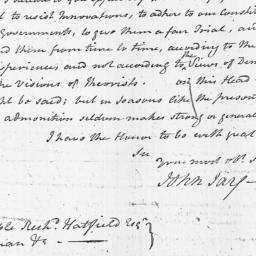 to resist Innovations, to adhere to our Constit
Governments, to give them a fair Trial, an
d them from time to time, according to the
xperience, and not according to the Views of dem
he Visions of Theorists. on this Head
ht be said; but in seasons like the present
admonition seldom makes strong or general
I have the Honor to be with great
Sir
Your most ob. S
John Jay
ble Rich.d Hatfield Esq.r
man &c